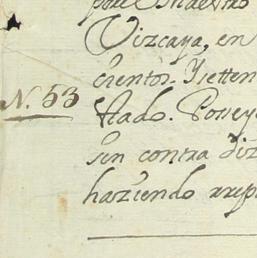 Vizcaya, en
cientos. Ysetten
N. 53
tado. Poseye
sin contra diz
haziendo